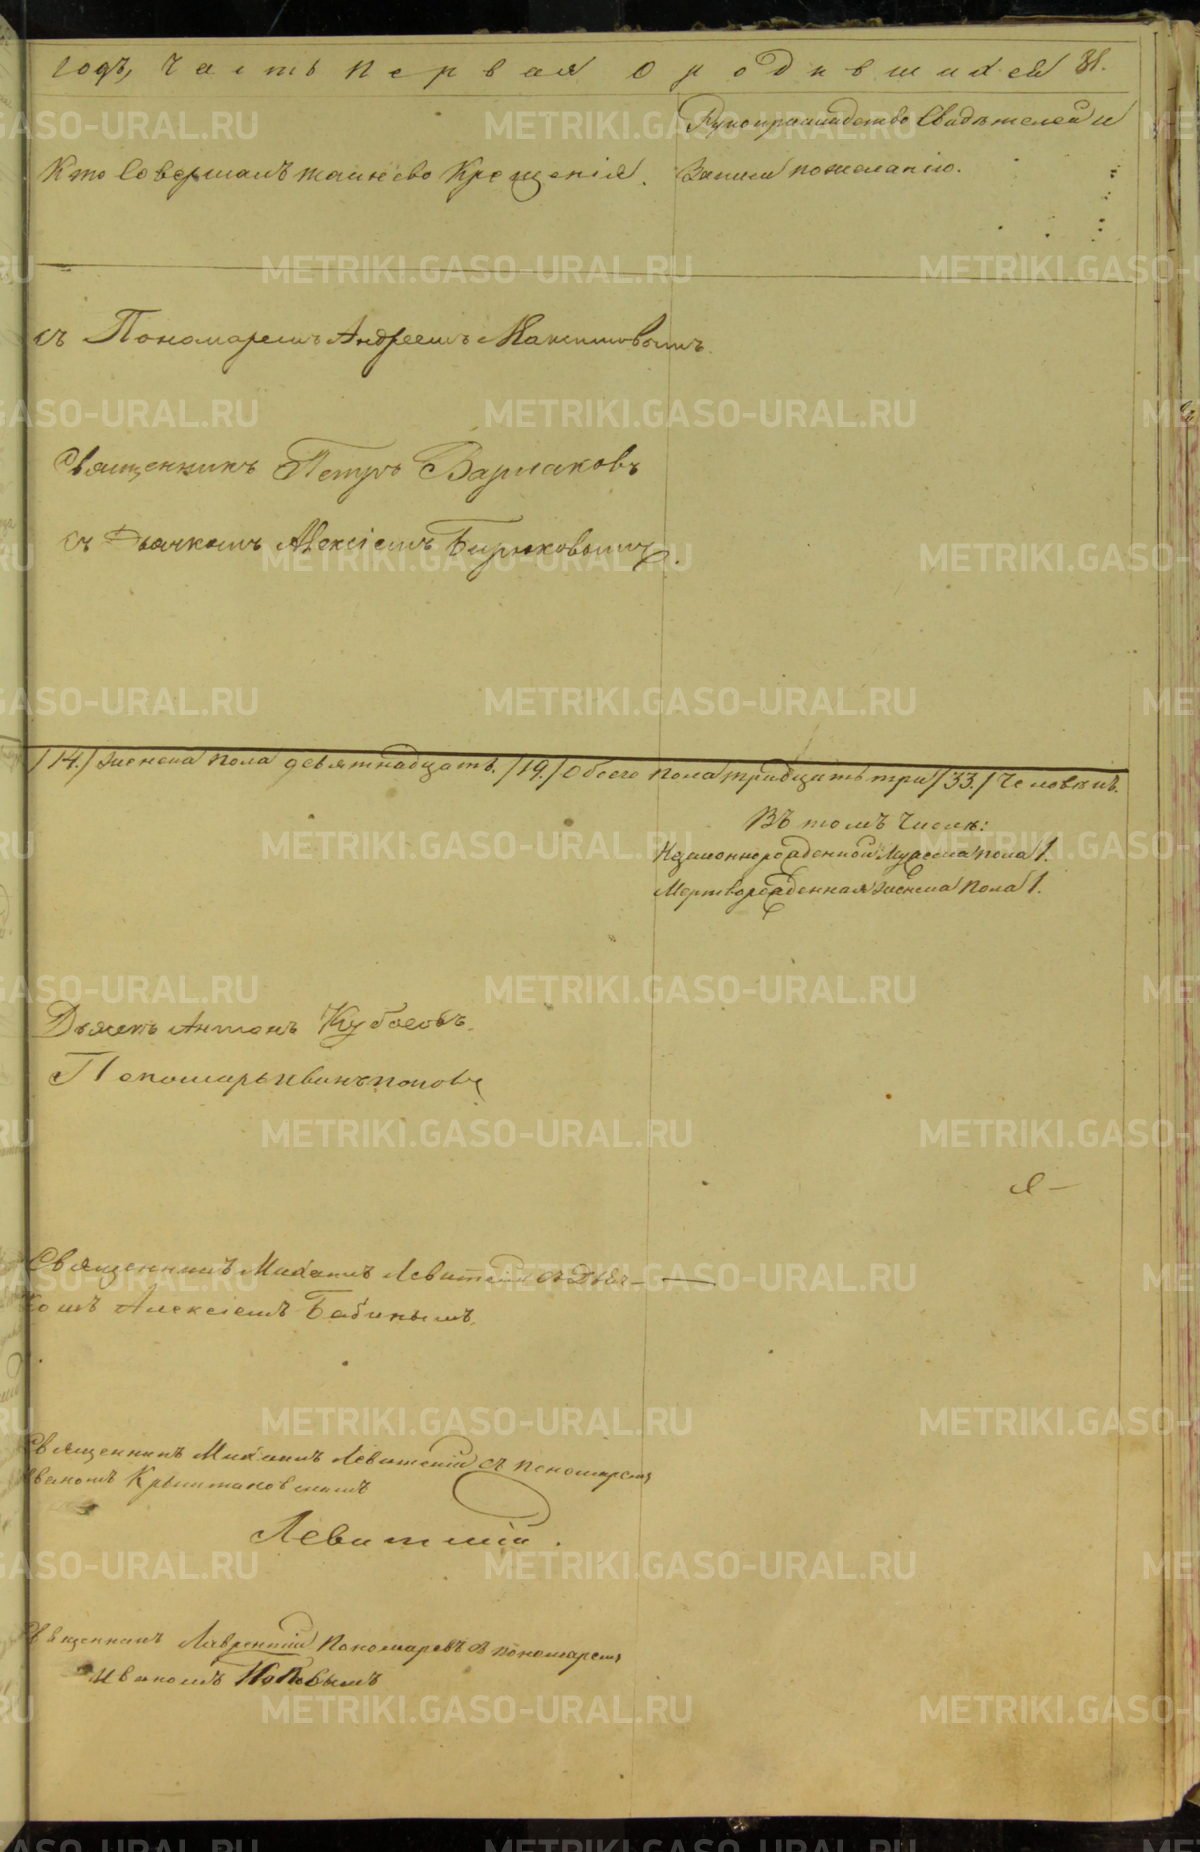 годъ, часть первая о родившихся 81.
Кто совершалъ таинство Крещенія.
Рукоприкладство Свидѣтелей и
Записи по желанію.
съ Пономаремъ Андреемъ Максимовымъ.
Священникъ Петръ Варлаковъ
съ Дьячкомъ Алексіемъ Бирюковымъ.
/14./ женска пола девятнадцать /19./ обоего пола тридцать три /33./ человѣкъ.
Въ томъ числѣ:
Незаконнорожденной Мужеска пола 1.
Мертворожденная женска пола 1.
Дьячекъ Антонъ
Пономарь Иванъ Поповъ
Священникъ Михаилъ Левитскій съ Дьяч-
комъ Алексіемъ Бабинымъ.
Священникъ Михаилъ Левитскій съ пономаремъ
Иваномъ
Левитскій.
Священникъ Лаврентій Пономаревъ съ пономаремъ
Иваномъ Поповымъ
METRIKI.GASO-URAL.RU